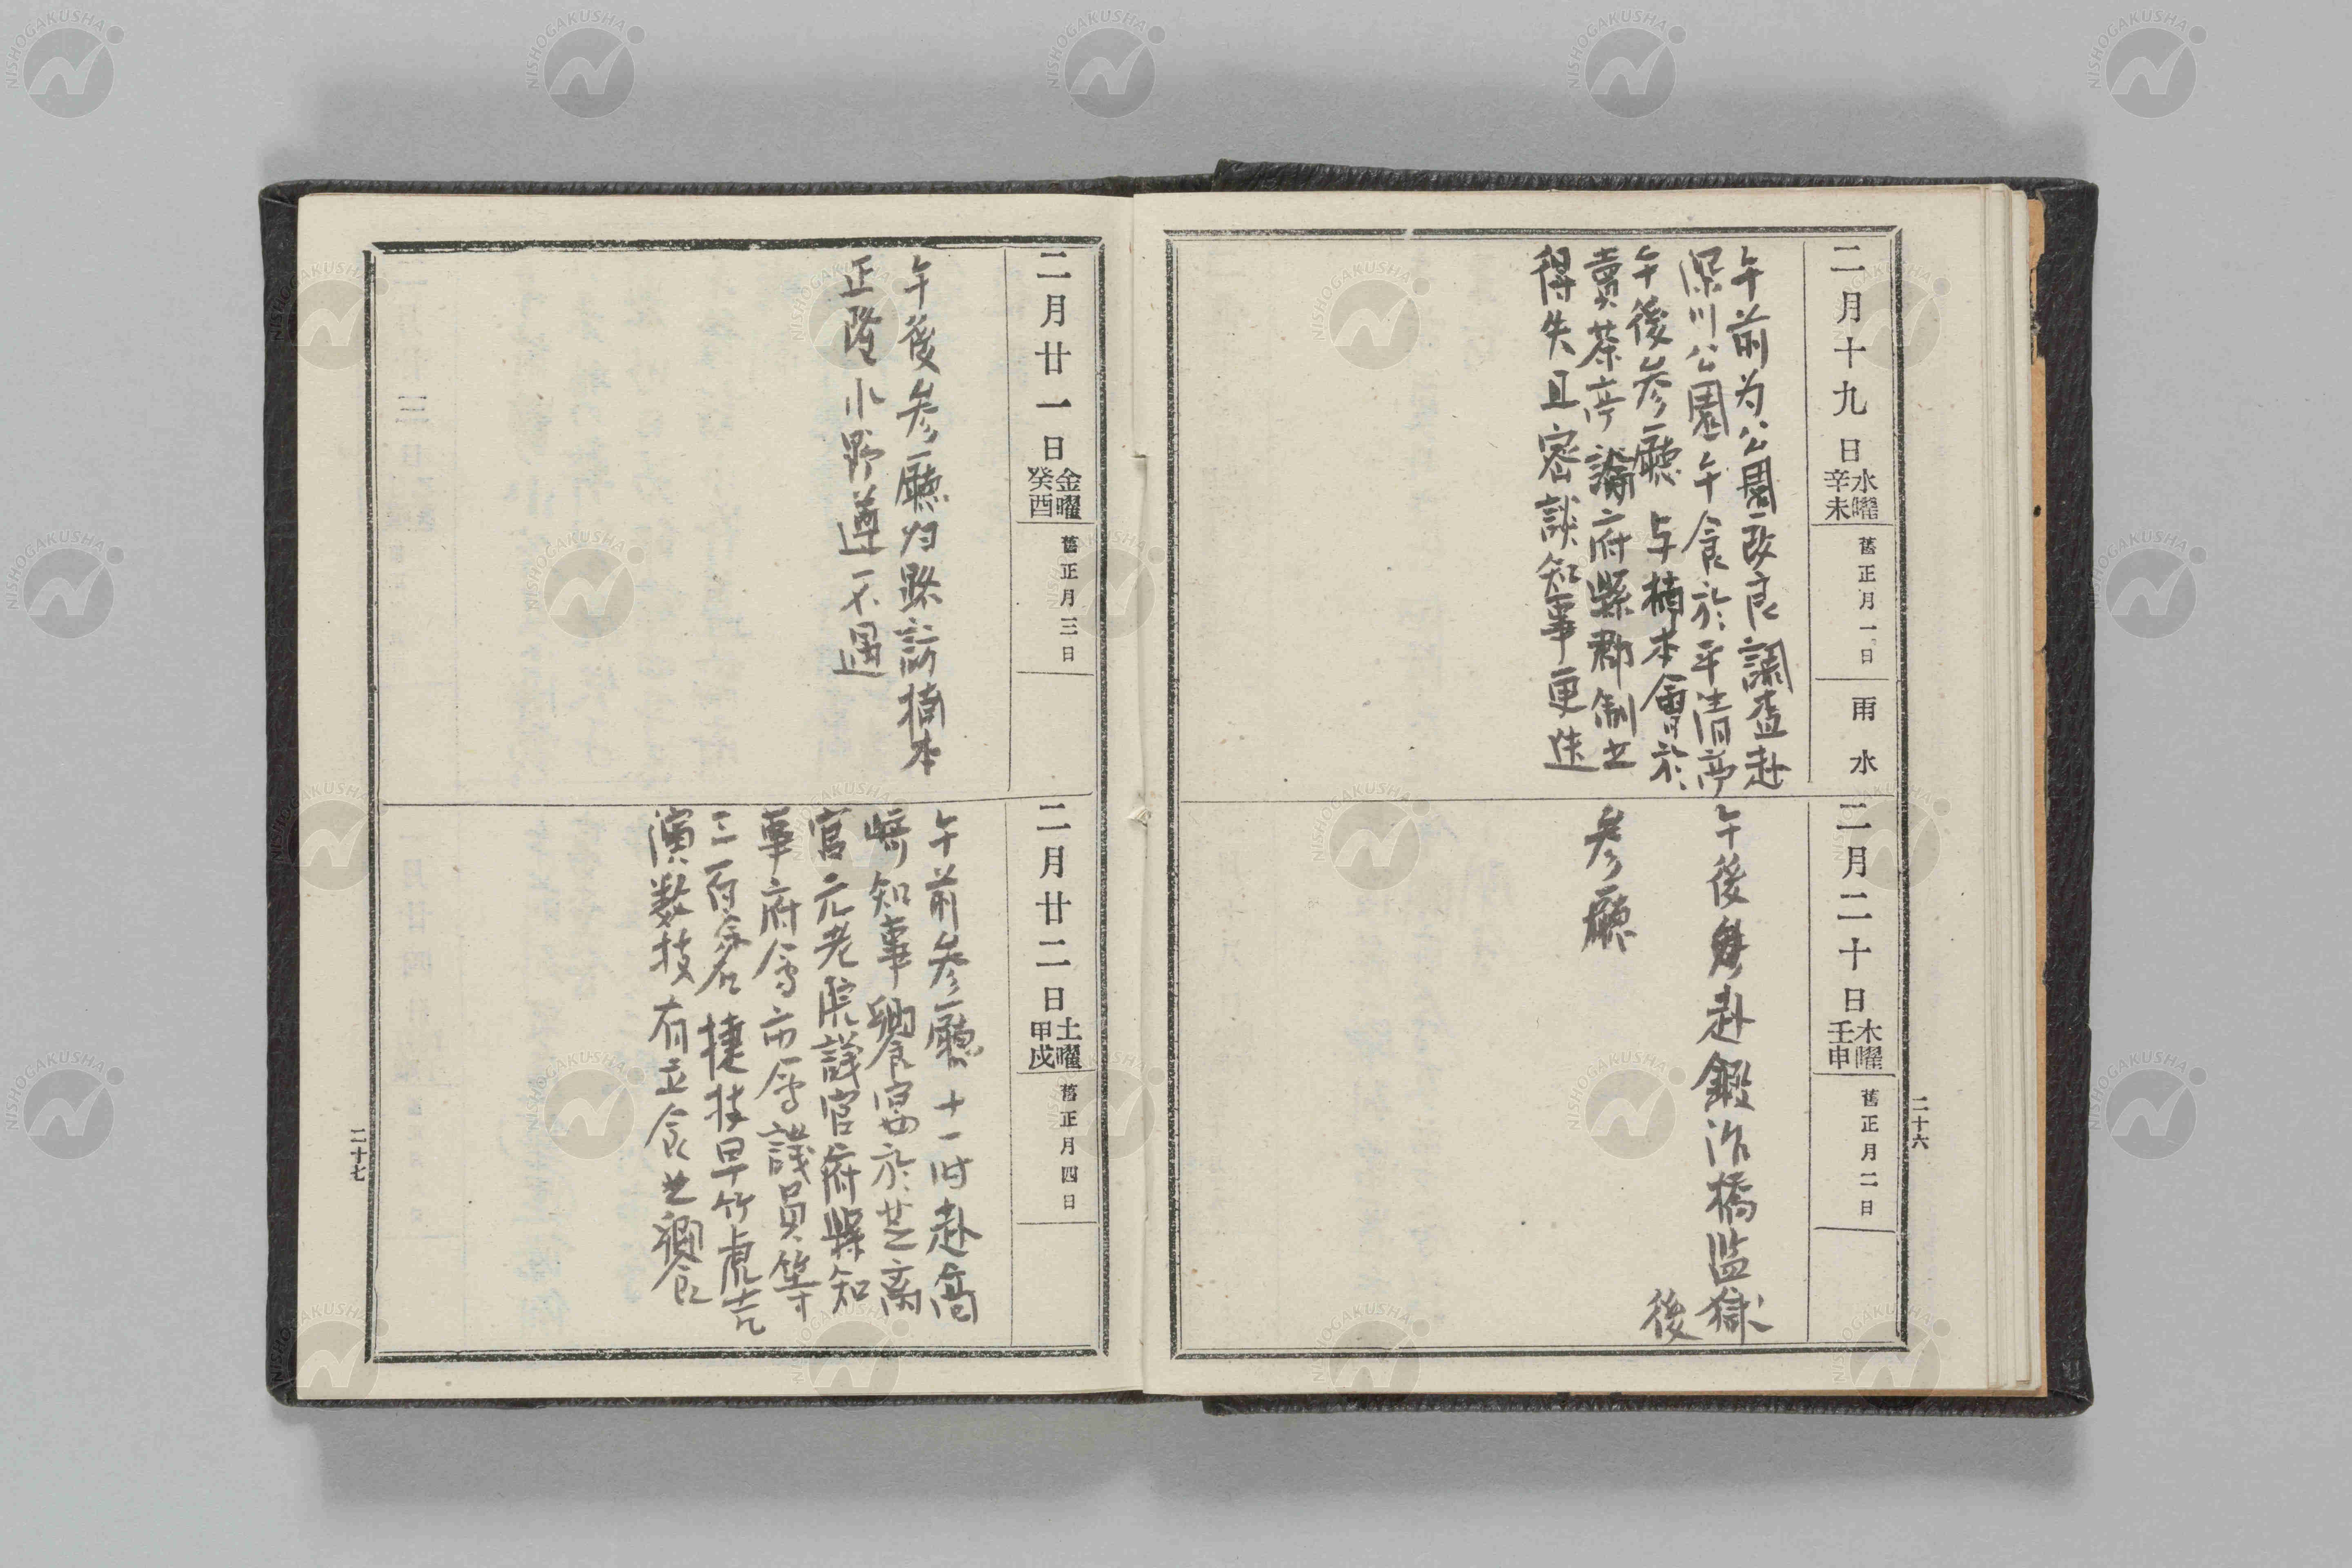 二月十九日
水曜
辛未
舊正月一日
雨水
午前为公園改良調査赴
深川公園午食於平清亭
午後参廳与楠本會於
賣茶亭論府縣郡制之
得失且密談知事更迭
二月二十日
木曜
壬申
舊正月二日
午後赴鍛冶橋监獄
後
参廳
二十六
二月廿一日
金曜
癸酉
舊正月三日
午後参廳归路訪楠本
正隆小野遵不遇
二月廿二日
土曜
甲戌
舊正月四日
午前参廳十一时赴高
崎知事饗宴於芝离
宮元老院議官府縣知
事府会市会議員等
三百余名 捷技早竹虎吉
演数技有立食之饗
二十七
NISHOGAKUSHA